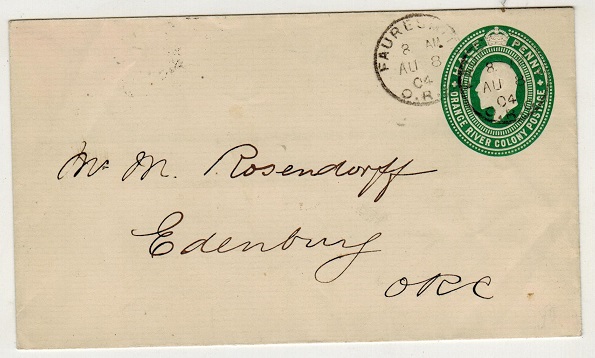 FAURESM
8 AM
AU 8
04
O.R.
HALF PENNY
ORANGE RIVER COLONY POSTAGE
8
AU 8
04
Mr M. Rosendorff
Edenburg
ORC